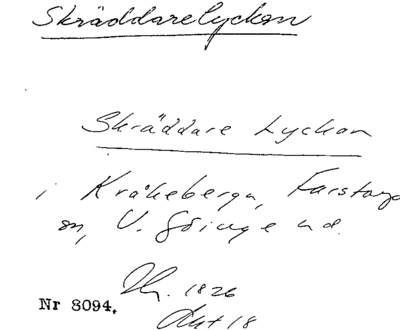 Skräddarelyckan
Skräddare Lyckan
i Kråkeberga, Farstorp
sn, V. Göinge hd.
Th. 1826
Nr 8094.
Akt 18